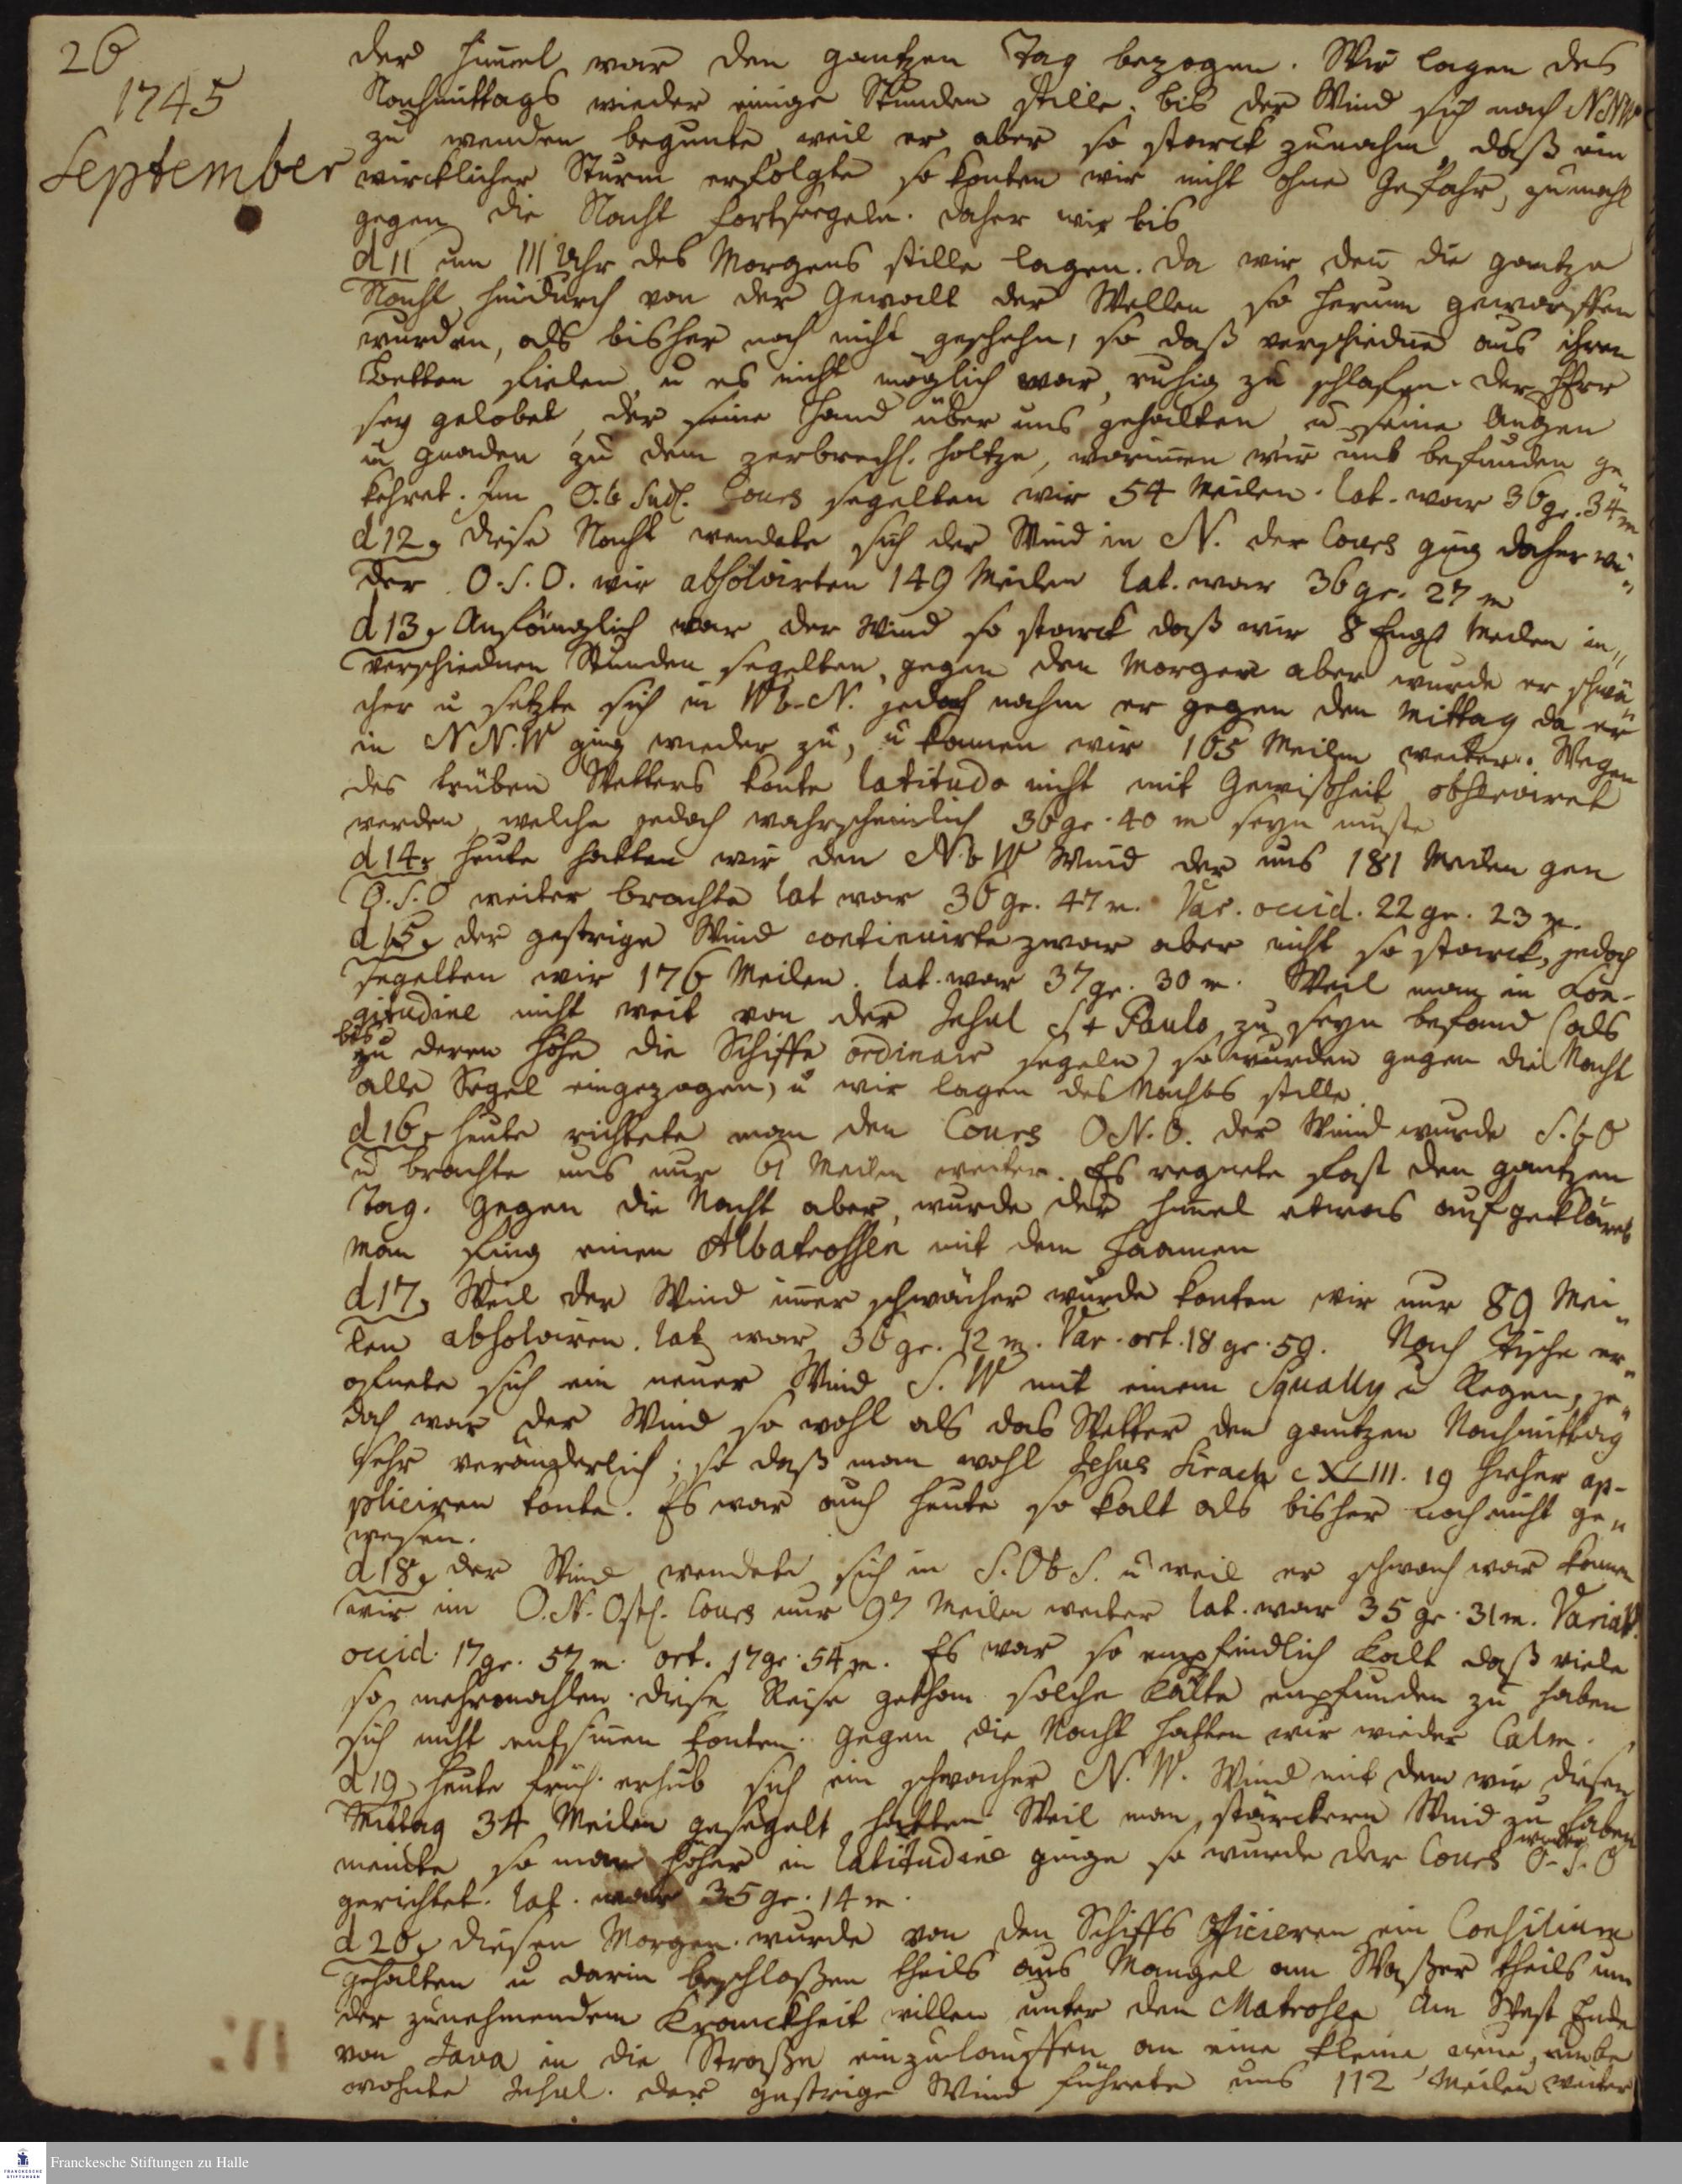 26
1745
September
der Him̅el war den gantzen Tag bezogen. Wir lagen des
Nachmittags wieder einige Stunden stille, bis der Wind sich nach NNW
zu wenden begunte, weil er aber so starck zunahm, daß ein
wircklicher Sturm erfolgte so konten wir nicht ohne Gefahr, zumahl
gegen die Nacht fortseegeln. daher wir bis
d 11 um III Uhr des Morgens stille lagen. Da wir den̅ die gantze
Nacht hindurch von der Gewalt der Wellen so herum geworffen
wurden, als bisher noch nicht geschehn, so daß verschiedne aus ihren
Betten fielen u es nicht möglich war, ruhig zu schlafen. Der HErr
sey gelobet, der seine Hand über uns gehalten u seine Augen
in Gnaden zu dem zerbrechl. Holtze, worinnen wir uns befunden ge„
kehret. Im O. b Südl. Cours segelten wir 54 Meilen. lat. war 36 gr. 34 m
d 12, diese Nacht wendete sich der Wind in N. der Cours ging daher wie„
der O.S.O. wir absolvirten 149 Meilen lat. war 36 gr. 27 m
d 13, Anfänglich war der Wind so starck daß wir 8 Engl Meilen in„
verschiednen Stunden segelten, gegen den Morgen aber wurde er schwä„
cher u setzte sich in W b. N. jedoch nahm er gegen den Mittag da er
in NN.W ging wieder zu, u kamen wir 165 Meilen weiter. Wegen
des trüben Wetters konte latitudo nicht mit Gewißheit observiret
werden, welche jedoch wahrscheinlich 36 gr. 40 m seyn muste
d 14, Heute hatten wir den N. b W Wind der uns 181 Meilen gen
O.S.O weiter brachte lat war 36 gr. 47 m. Var. occid. 22 gr. 23 m.
d 15, der gestrige Wind continuirte zwar aber nicht so starck, jedoch
segelten wir 176 Meilen. lat. war 37 gr. 30 m. Weil man in Lon-
gitudine nicht weit von der Insul St Paulo zu seyn befand (als
bis
zu deren Höhe die Schiffe ordinair segeln) so wurden gegen die Nacht
alle Segel eingezogen, u wir lagen des Nachts stille.
d 16, Heute richtete man den Cours ON.O. der Wind wurde S. b O
u brachte uns nur 61 Meilen weiter. Es regnete fast den gantzen
Tag. Gegen die Nacht aber, wurde der Him̅el etwas aufgekläret
Man fing einen Albatrossen mit dem Haamen
d 17, Weil der Wind im̅er schwächer wurde konten wir nur 89 Mei„
len absolviren. lat war 36 gr. 12 m. Var. ort. 18 gr. 59. Nach Tische er„
öfnete sich ein neuer Wind S. W mit einem Squally u Regen, je„
doch war der Wind so wohl als das Wetter den gantzen Nachmittag
sehr veränderlich; so daß man wohl Jesus Sirach c XLIII. 19 hieher ap-
pliciren konte. Es war auch heute so kalt als bisher noch nicht ge„
wesen.
d 18, der Wind wendete sich in S.Ob S. u weil er schwach war kamen
wir im O.N. Ostl. Cours nur 97 Meilen weiter lat. war 35 gr. 31 m. Variat.
occid. 17 gr. 57 m. ort. 17 gr. 54 m. Es war so empfindlich kalt daß viele
so mehrmahlen diese Reise gethan solche Kälte empfunden zu haben
sich nicht entsinnen konten. gegen die Nacht hatten wir wieder Calm.
d 19, Heute früh erhub sich ein schwacher N. W. Wind mit dem wir diesen
Mittag 34 Meilen gesegelt hatten Weil man stärckern Wind zu haben
meinte so man höher in latitudine ginge so wurde der Cours wieder O-S.O
gerichtet. lat. war 35 gr. 14 m.
d 20, diesen Morgen wurde von den Schiffs Officieren ein Consilium
gehalten u darin beschloßen theils aus Mangel am Waßer theils um
der zunehmenden Kranckheit willen unter den Matrosen Am West Ende
von Java in die Straße einzulauffen an eine kleine unbe
wohnte Insul. Der gestrige Wind führete uns 112 Meilen weiter
Franckesche Stiftungen zu Halle
FRANCKESCHE STIFTUNGEN